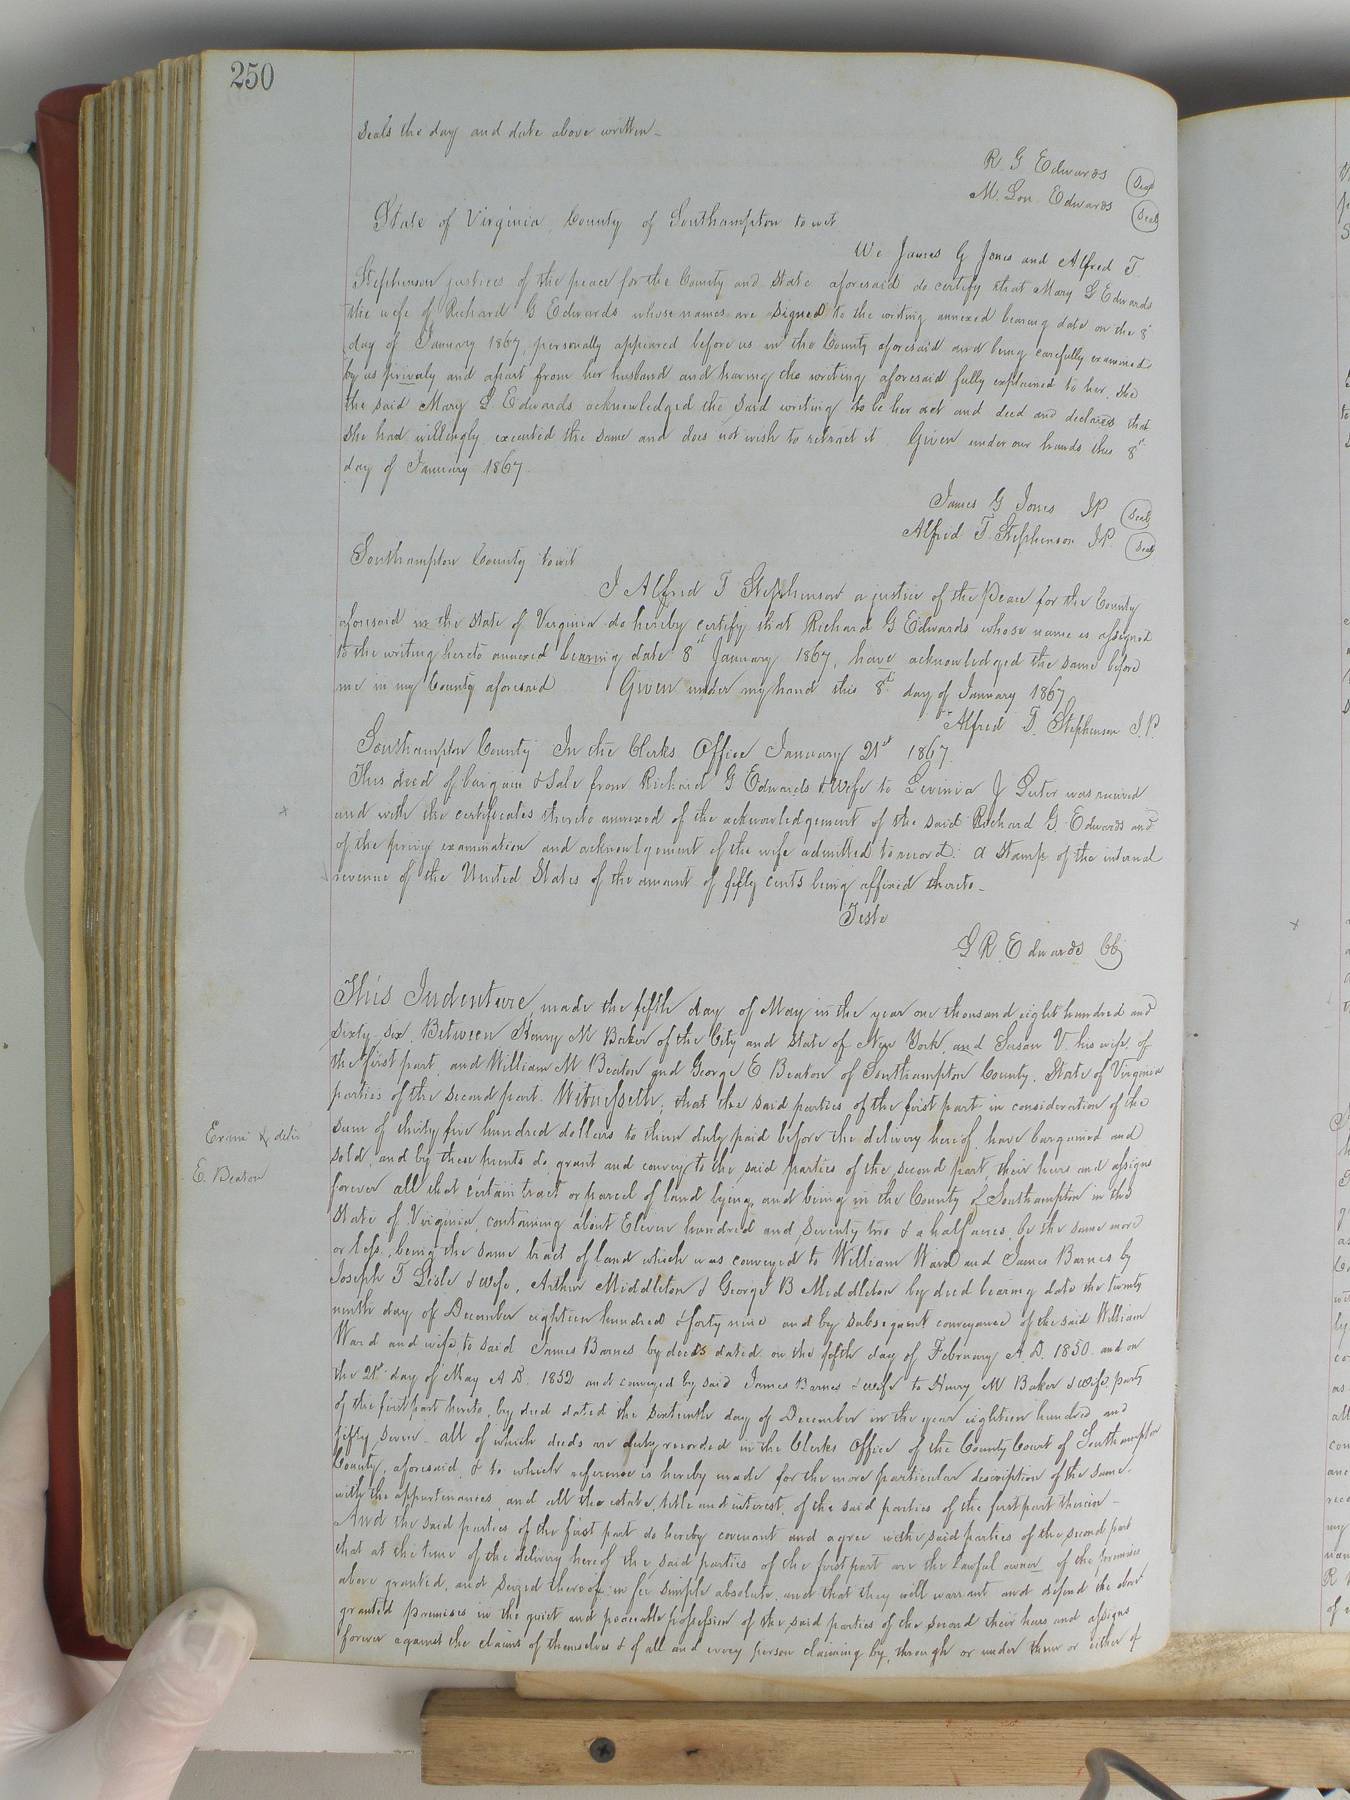 250
seals the day and date above written_
R G Edwards (Seal)
M. Lou Edwards (Seal)
State of Virginia County of Southampton to wit
We James G Jones and Alfred T.
Stephenson justices of the peace for the County and State aforesaid do certify that Mary L Edwards
the wife of Richard G Edwards whose names are signed to the writing annexed bearing date on the 8"
day of January 1867, personally appeared before us in the County aforesaid and being carefully examined
by us privaly and apart from her husband and having the writing aforesaid fully explained to her, she
the said Mary L Edwards acknowledged the said writing to be her act and deed and declared that
she had willingly executed the same and does not wish to retract it Given under our hands this 8th
day of January 1867.
James G Jones JP (Seal)
Alfred T. Stephenson JP. (Seal)
Southampton County towit
I Alfred T Stephenson a justice of the Peace for the County
aforesaid in the State of Virginia do hereby certify that Richard G Edwards whose name is assigned
to the writing hereto annexed bearing date 8th January 1867, have acknowledged the same before
me in my County aforesaid Given under my hand this 8th day of January 1867
Alfred T. Stephenson J.P.
Southampton County In the Clerks Office January 21st 1867.
This deed of bargain & sale from Richard G Edwards & Wife to Levinia J Luter was received
and with the certificates thereto annexed of the acknowledgement of the said Richard G. Edwards and
of the privy examination and acknowlgement of the wife admitted to record. A stamp of the internal
revenue of the United States of the amount of fifty cents being affixed thereto_
Teste
L R Edwards CC
This Indenture, made the fifth day of May in the year one thousand eight hundred and
sixty six. Between Henry M Baker of the City and State of New York, and Susan V. his wife, of
the first part, and William M Beaton and George E Beaton of Southampton County. State of Virginia
parties of the second part. Witnesseth; that the said parties of the first part in consideration of the
sum of thirty five hundred dollars to them duly paid before the delivery hereof have bargained and
sold, and by these prents do grant and convey to the said parties of the second part, their heirs and assigns
forever all that certain tract or parcel of land lying and being in the County of Southampton in the
State of Virginia, containing about Eleven hundred and seventy two & a half acres, be the same more
or less, being the same tract of land which was conveyed to William Ward and James Barnes by
Joseph T Lisle & wife, Arthur Middleton & George B Middleton by deed bearing date the twenty
ninth day of December eighteen hundred & forty nine and by subsequent conveyance of the said William
Ward and wife, to said James Barnes by deeds dated on the fifth day of February A. D. 1850. and on
the 21st day of May A D. 1852 and conveyed by said James Barnes & wife to Henry M Baker & wife, party
of the first part hereto, by deed dated the sixteenth day of December in the year eighteen hundred and
fifty seven. all of which deeds are duly recorded in the Clerks Office of the County Court of Southampton
County, aforesaid, & to which reference is hereby made for the more particular description of the same.
with the appurtenances, and all the estate, title and interest, of the said parties of the first part therein_
And the said parties of the first part do hereby covenant and agree with said parties of the second part
that at the time of the delivery hereof the said parties of the first part are the lawful owner of the premises
above granted, and seized thereof in fee simple absolute, and that they will warrant and defend the above
granted premises in the quiet and peaceable possession of the said parties of the second their heirs and assigns
forever against the claims of themselves & of all and every person claiming by, through or under them or either of
E. Beaton